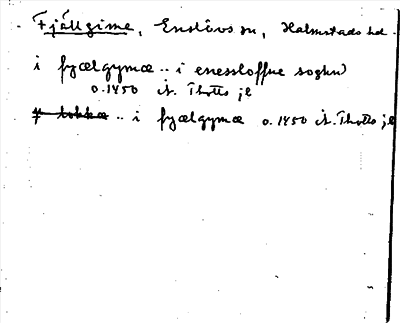 Fjällgime, Enslövs sn, Halmstads hd.
i fyælgymæ .. i enessloffue soghn
o. 1450 Å. Thotts jb
i fyælgymæ o. 1450 Å. Thotts jb